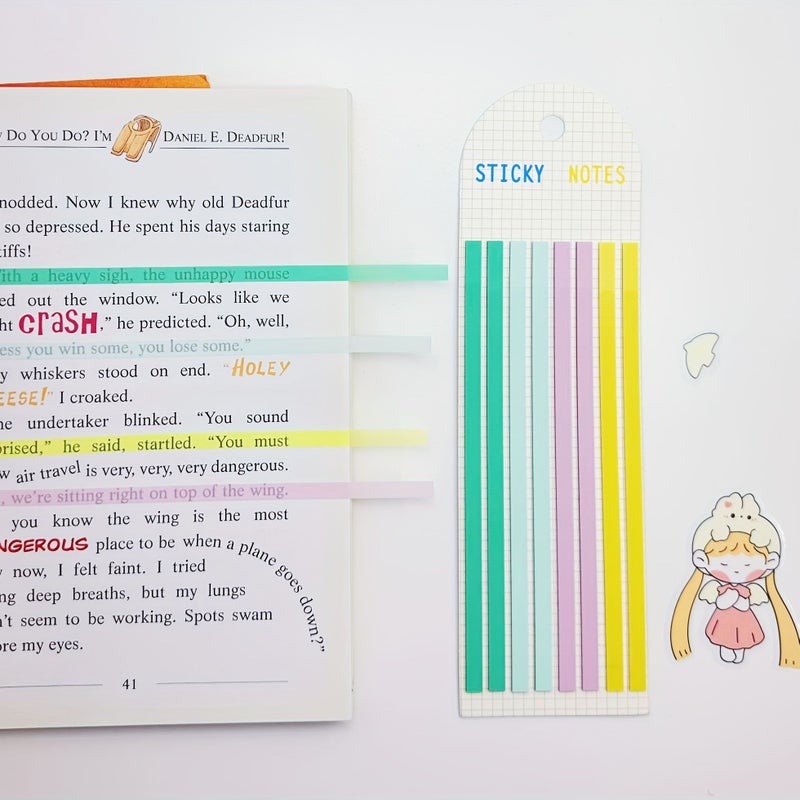 DO YOU DO? I'M DANIEL E. DEADFUR!
nodded. Now I knew why old Deadfur
so depressed. He spent his days staring
tiffs!
With a heavy sigh, the unhappy mouse
ed out the window. “Looks like we
ht CRASH,” he predicted. “Oh, well,
ess you win some, you lose some.”
y whiskers stood on end. “HOLEY
EESE!” I croaked.
he undertaker blinked. “You sound
prised,” he said, startled. “You must
w air travel is very, very, very dangerous.
, we're sitting right on top of the wing.
you know the wing is the most
NGEROUS place to be when a plane goes down?”
now, I felt faint. I tried
ng deep breaths, but my lungs
n't seem to be working. Spots swam
ore my eyes.
41
STICKY NOTES